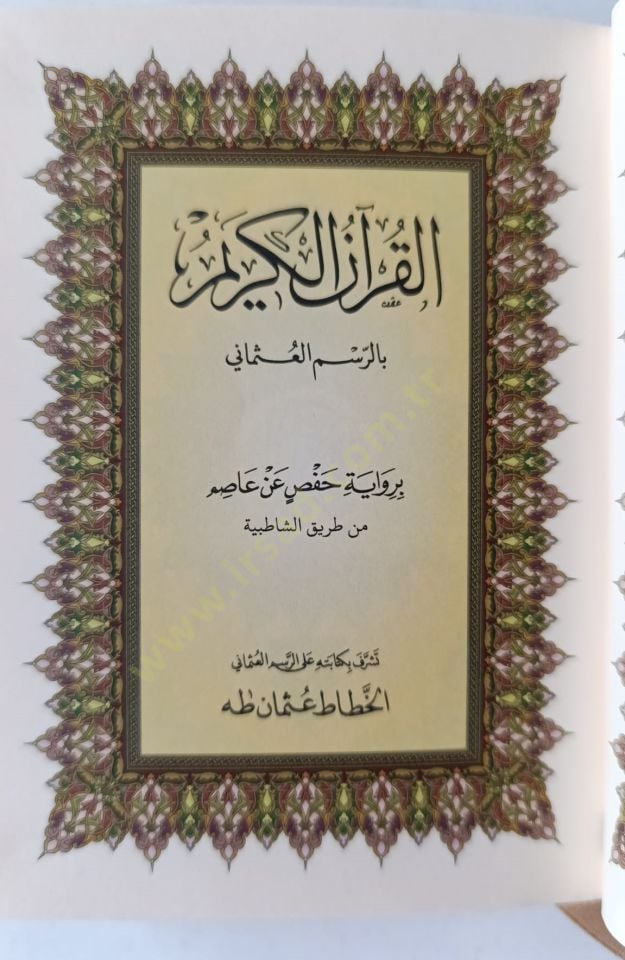 القُرآنُ الكَرِيمُ
بالرّسْم العُثماني
بِرِوَايَةِ حَفْصٍ عَنْ عَاصِم
من طريق الشاطبية
تَشَرَّفَ بِكِتَابَتِهِ عَلى الرَّسم العُثماني
الخَطَّاط عُثمان طٰه